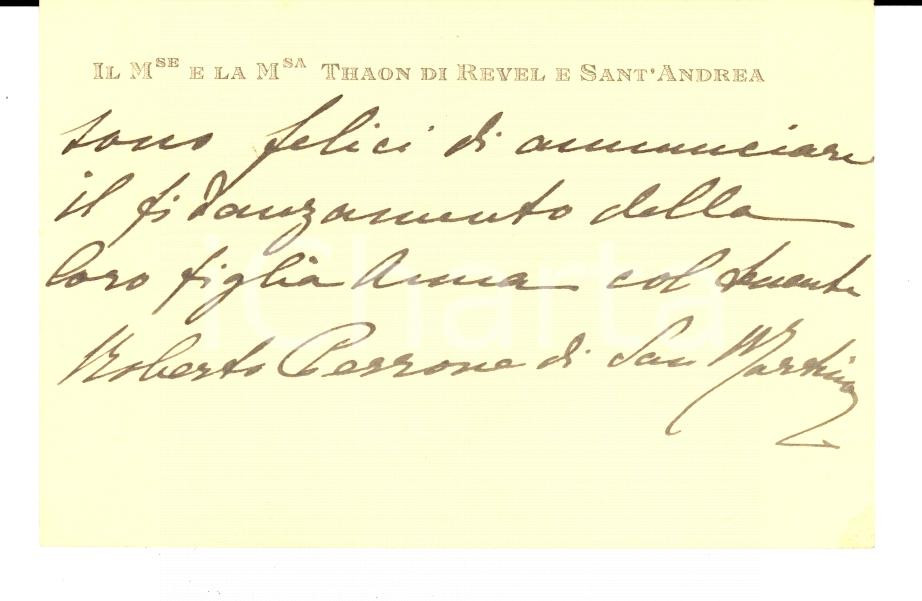 Il Mse e la Msa Thaon di Revel e Sant'Andrea
sono felici di annunciare
il fidanzamento della
loro figlia Anna col tenente
Roberto Perrone di San Martino
iCharta